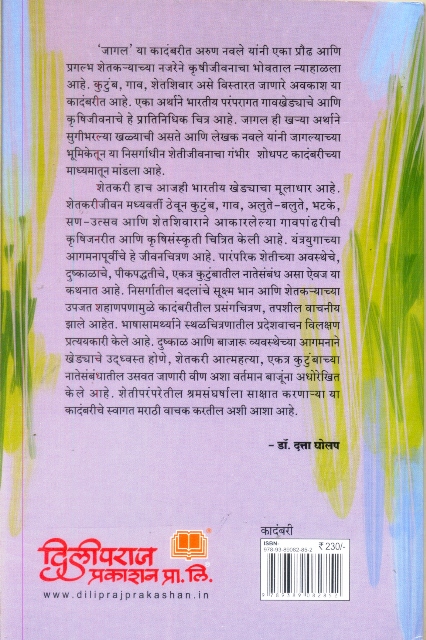 'जागल' या कादंबरीत अरुण नवले यांनी एका प्रौढ आणि
प्रगल्भ शेतकऱ्याच्या नजरेने कृषीजीवनाचा भोवताल न्याहाळला
आहे. कुटुंब, गाव, शेतशिवार असे विस्तारत जाणारे अवकाश या
कादंबरीत आहे. एका अर्थाने भारतीय परंपरागत गावखेड्याचे आणि
कृषिजीवनाचे हे प्रातिनिधिक चित्र आहे. जागल ही खऱ्या अर्थाने
सुगीभरल्या खळ्याची असते आणि लेखक नवले यांनी जागल्याच्या
भूमिकेतून या निसर्गाधीन शेतीजीवनाचा गंभीर शोधपट कादंबरीच्या
माध्यमातून मांडला आहे.
शेतकरी हाच आजही भारतीय खेड्याचा मूलाधार आहे.
शेतकरीजीवन मध्यवर्ती ठेवून कुटुंब, गाव, अलुते-बलुते, भटके,
सण-उत्सव आणि शेतशिवाराने आकारलेल्या गावपांढरीची
कृषिजनरीत आणि कृषिसंस्कृती चित्रित केली आहे. यंत्रयुगाच्या
आगमनापूर्वीचे हे जीवनचित्रण आहे. पारंपरिक शेतीच्या अवस्थेचे,
दुष्काळाचे, पीकपद्धतीचे, एकत्र कुटुंबातील नातेसंबंध असा ऐवज या
कथनात आहे. निसर्गातील बदलांचे सूक्ष्म भान आणि शेतकऱ्याच्या
उपजत शहाणपणामुळे कादंबरीतील प्रसंगचित्रण, तपशील वाचनीय
झाले आहेत. भाषासामर्थ्याने स्थळचित्रणातील प्रदेशवाचन विलक्षण
प्रत्ययकारी केले आहे. दुष्काळ आणि बाजारू व्यवस्थेच्या आगमनाने
खेड्याचे उद्ध्वस्त होणे, शेतकरी आत्महत्या, एकत्र कुटुंबाच्या
नातेसंबंधातील उसवत जाणारी वीण अशा वर्तमान बाजूंना अधोरेखित
केले आहे. शेतीपरंपरेतील श्रमसंघर्षाला साक्षात करणाऱ्या या
कादंबरीचे स्वागत मराठी वाचक करतील अशी आशा आहे.
– डॉ. दत्ता घोलप
कादंबरी
दिलीपराज
प्रकाशन प्रा. लि.
www.diliprajprakashan.in
ISBN:
₹ 230/-